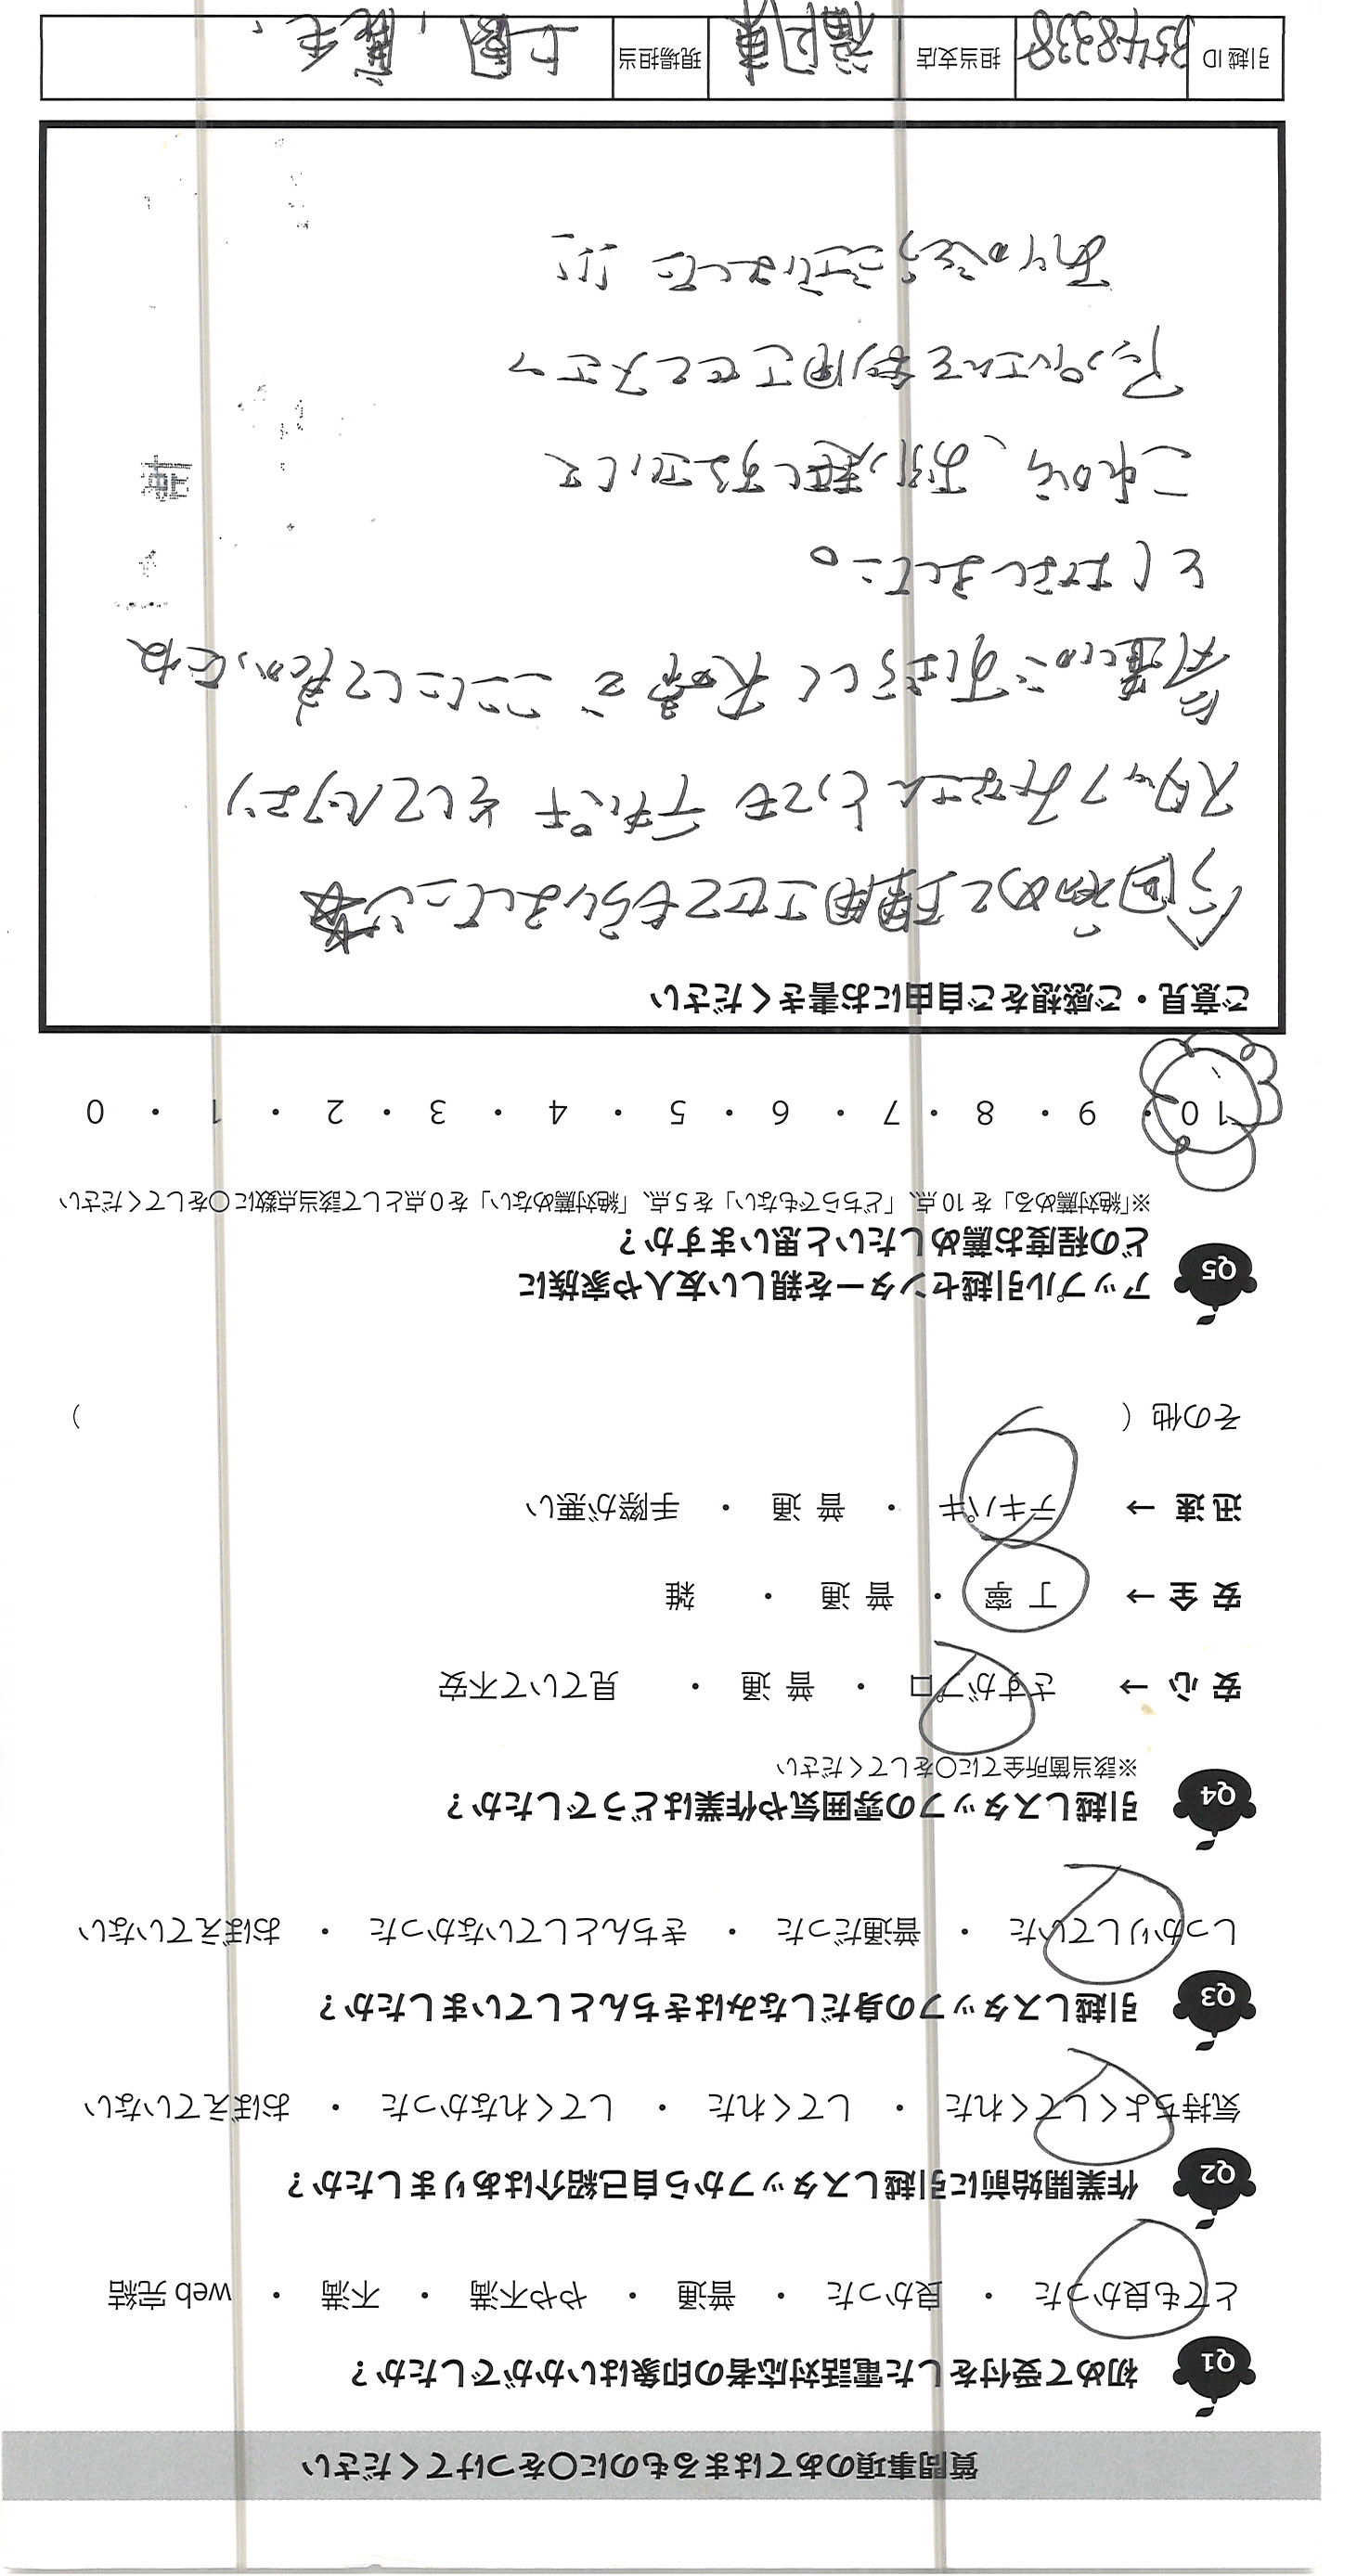 質問事項のあてはまるものに〇をつけてください
Q1 初めて受付をした電話対応者の印象はいかがでしたか？
とても良かった ・ 良かった ・ 普通 ・ やや不満 ・ 不満 ・ web 完結
Q2 作業開始前に引越しスタッフから自己紹介はありましたか？
気持ちよくしてくれた ・ してくれた ・ してくれなかった ・ おぼえていない
Q3 引越しスタッフの身だしなみはきちんとしていましたか？
しっかりしていた ・ 普通だった ・ きちんとしていなかった ・ おぼえていない
Q4 引越しスタッフの雰囲気や作業はどうでしたか？
※該当箇所全てに〇をしてください
安 心 → さすがプロ ・ 普 通 ・ 見ていて不安
安 全 → 丁 寧 ・ 普 通 ・ 雑
迅 速 → テキパキ ・ 普 通 ・ 手際が悪い
その他（ ）
Q5 アップル引越センターを親しい友人や家族に
どの程度お薦めしたいと思いますか？
※「絶対薦める」を 10 点、「どちらでもない」を 5 点、「絶対薦めない」を 0 点として該当点数に〇をしてください
10 ・ 9 ・ 8 ・ 7 ・ 6 ・ 5 ・ 4 ・ 3 ・ 2 ・ 1 ・ 0
ご意見・ご感想をご自由にお書きください
今回初めて利用させてもらいましたが
スタッフみなさんとっても テキパキ そして
すばらしく 大事で ここにして良かったね
となりました。
これから、お引っ越しするさいして
アップルさんを利用させて
ありがとうございました!!
引越 ID 担当支店 福岡東 現場担当